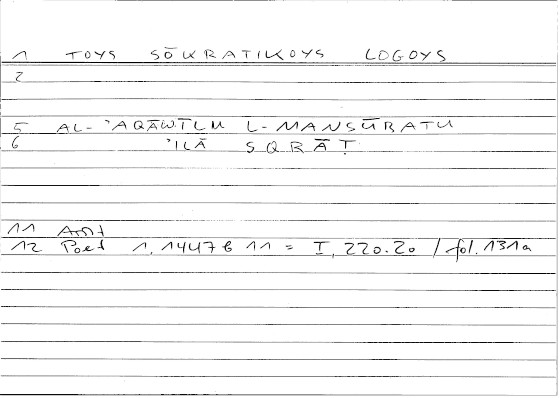 1 TOYS SŌKRATIKOYS LOGOYS
2
5 AL-ʾAQĀWĪLU L-MANSŪBATU
6 ʾILĀ SQRĀṬ
11 Arist
12 Poet 1, 1447b 11 = I, 220.20 / fol. 131a